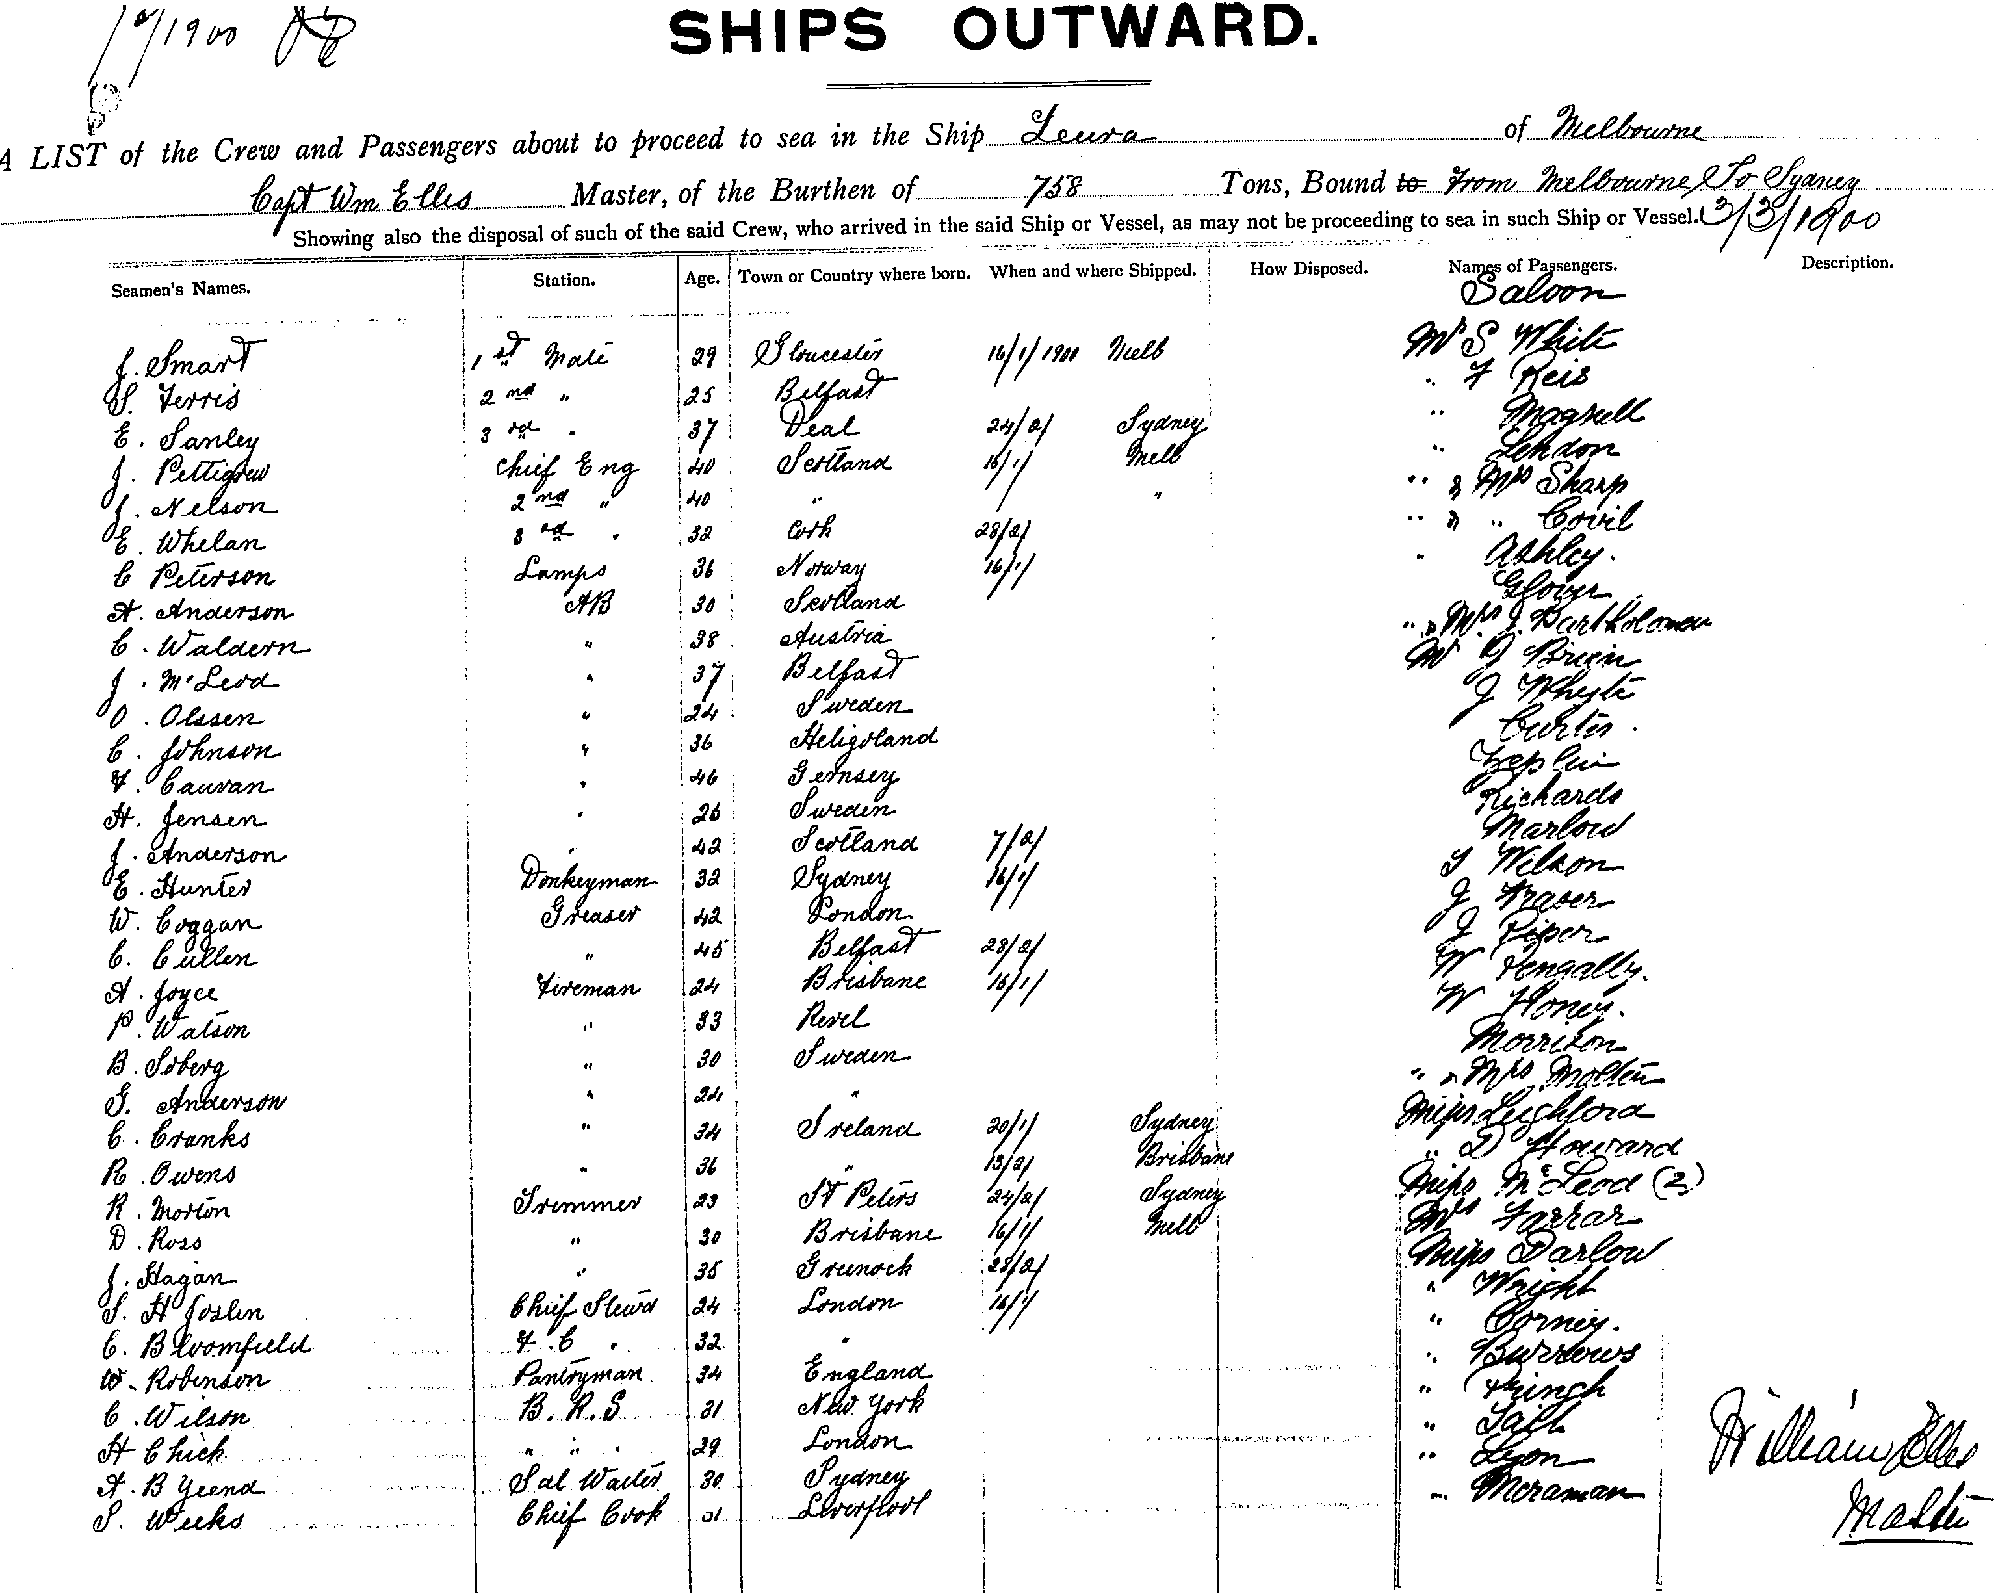 1900
SHIPS OUTWARD.
A LIST of the Crew and Passengers about to proceed to sea in the Ship Leura of Melbourne
Capt Wm Ellis Master, of the Burthen of 758 Tons, Bound to From Melbourne To Sydney
Showing also the disposal of such of the said Crew, who arrived in the said Ship or Vessel, as may not be proceeding to sea in such Ship or Vessel. 3/3/1900
Seamen's Names. Station. Age. Town or Country where born. When and where Shipped. How Disposed. Names of Passengers. Description.
Saloon
J. Smart 1st Mate 29 Gloucester 16/1/1900 Melb Mr S White
S. Ferris 2nd " 25 Belfast " F Reis
E. Sanley 3rd " 37 Deal 24/2/ Sydney "
J. Pettigrew Chief Eng 40 Scotland 16/1/ Melb " Lendon
J. Nelson 2nd " 40 " " " & Mrs Sharp
E. Whelan 3rd " 32 Cork 28/2/ " & " Covil
C Peterson Lamps 36 Norway 16/1/ " Ashley.
A. Anderson AB 30 Scotland Glover
C. Waldern " 38 Austria " & Mrs J. Bartholomew
J. McLeod " 37 Belfast Mr J Brien
O. Olssen " 24 Sweden J Whyte
C. Johnson " 36 Heligoland Curtis.
F. Cauvan " 46 Gernsey Zeplin
H. Jensen " 26 Sweden Richards
J. Anderson " 42 Scotland 7/2/ Marlow
E. Hunter Donkeyman 32 Sydney 16/1/ T Wilson
W. Coggan Greaser 42 London J Fraser
C. Cullen " 45 Belfast 28/2/ J Piper
A. Joyce Fireman 24 Brisbane 16/1/ W Pengally.
P. Watson " 33 Revel W Honey.
B. Soberg " 30 Sweden Morrison
G. Anderson " 24 " " & Mrs Molten
C. Cranks " 34 Ireland 20/1/ Sydney Miss Leighford
R. Owens " 36 " 13/2/ Brisbane " D Howard
R. Morton Trimmer 23 St Peters 24/2/ Sydney Miss McLeod (2)
D. Ross " 30 Brisbane 16/1/ Melb Mrs Farrar
J. Hagan " 35 Greenock 28/2/ Miss Darlow
S. H Joslen Chief Stewd 24 London 16/1/ " Wright
C. Bloomfield F. C " 32 " " Corney.
W. Robinson Pantryman 34 England " Burrows
C. Wilson B. R. S 31 New York "
H Chick " " " 29 London "
A. B Yeend Sal Waiter 30 Sydney " Lyon
S. Weeks Chief Cook 31 Liverpool "
William Ellis
Master